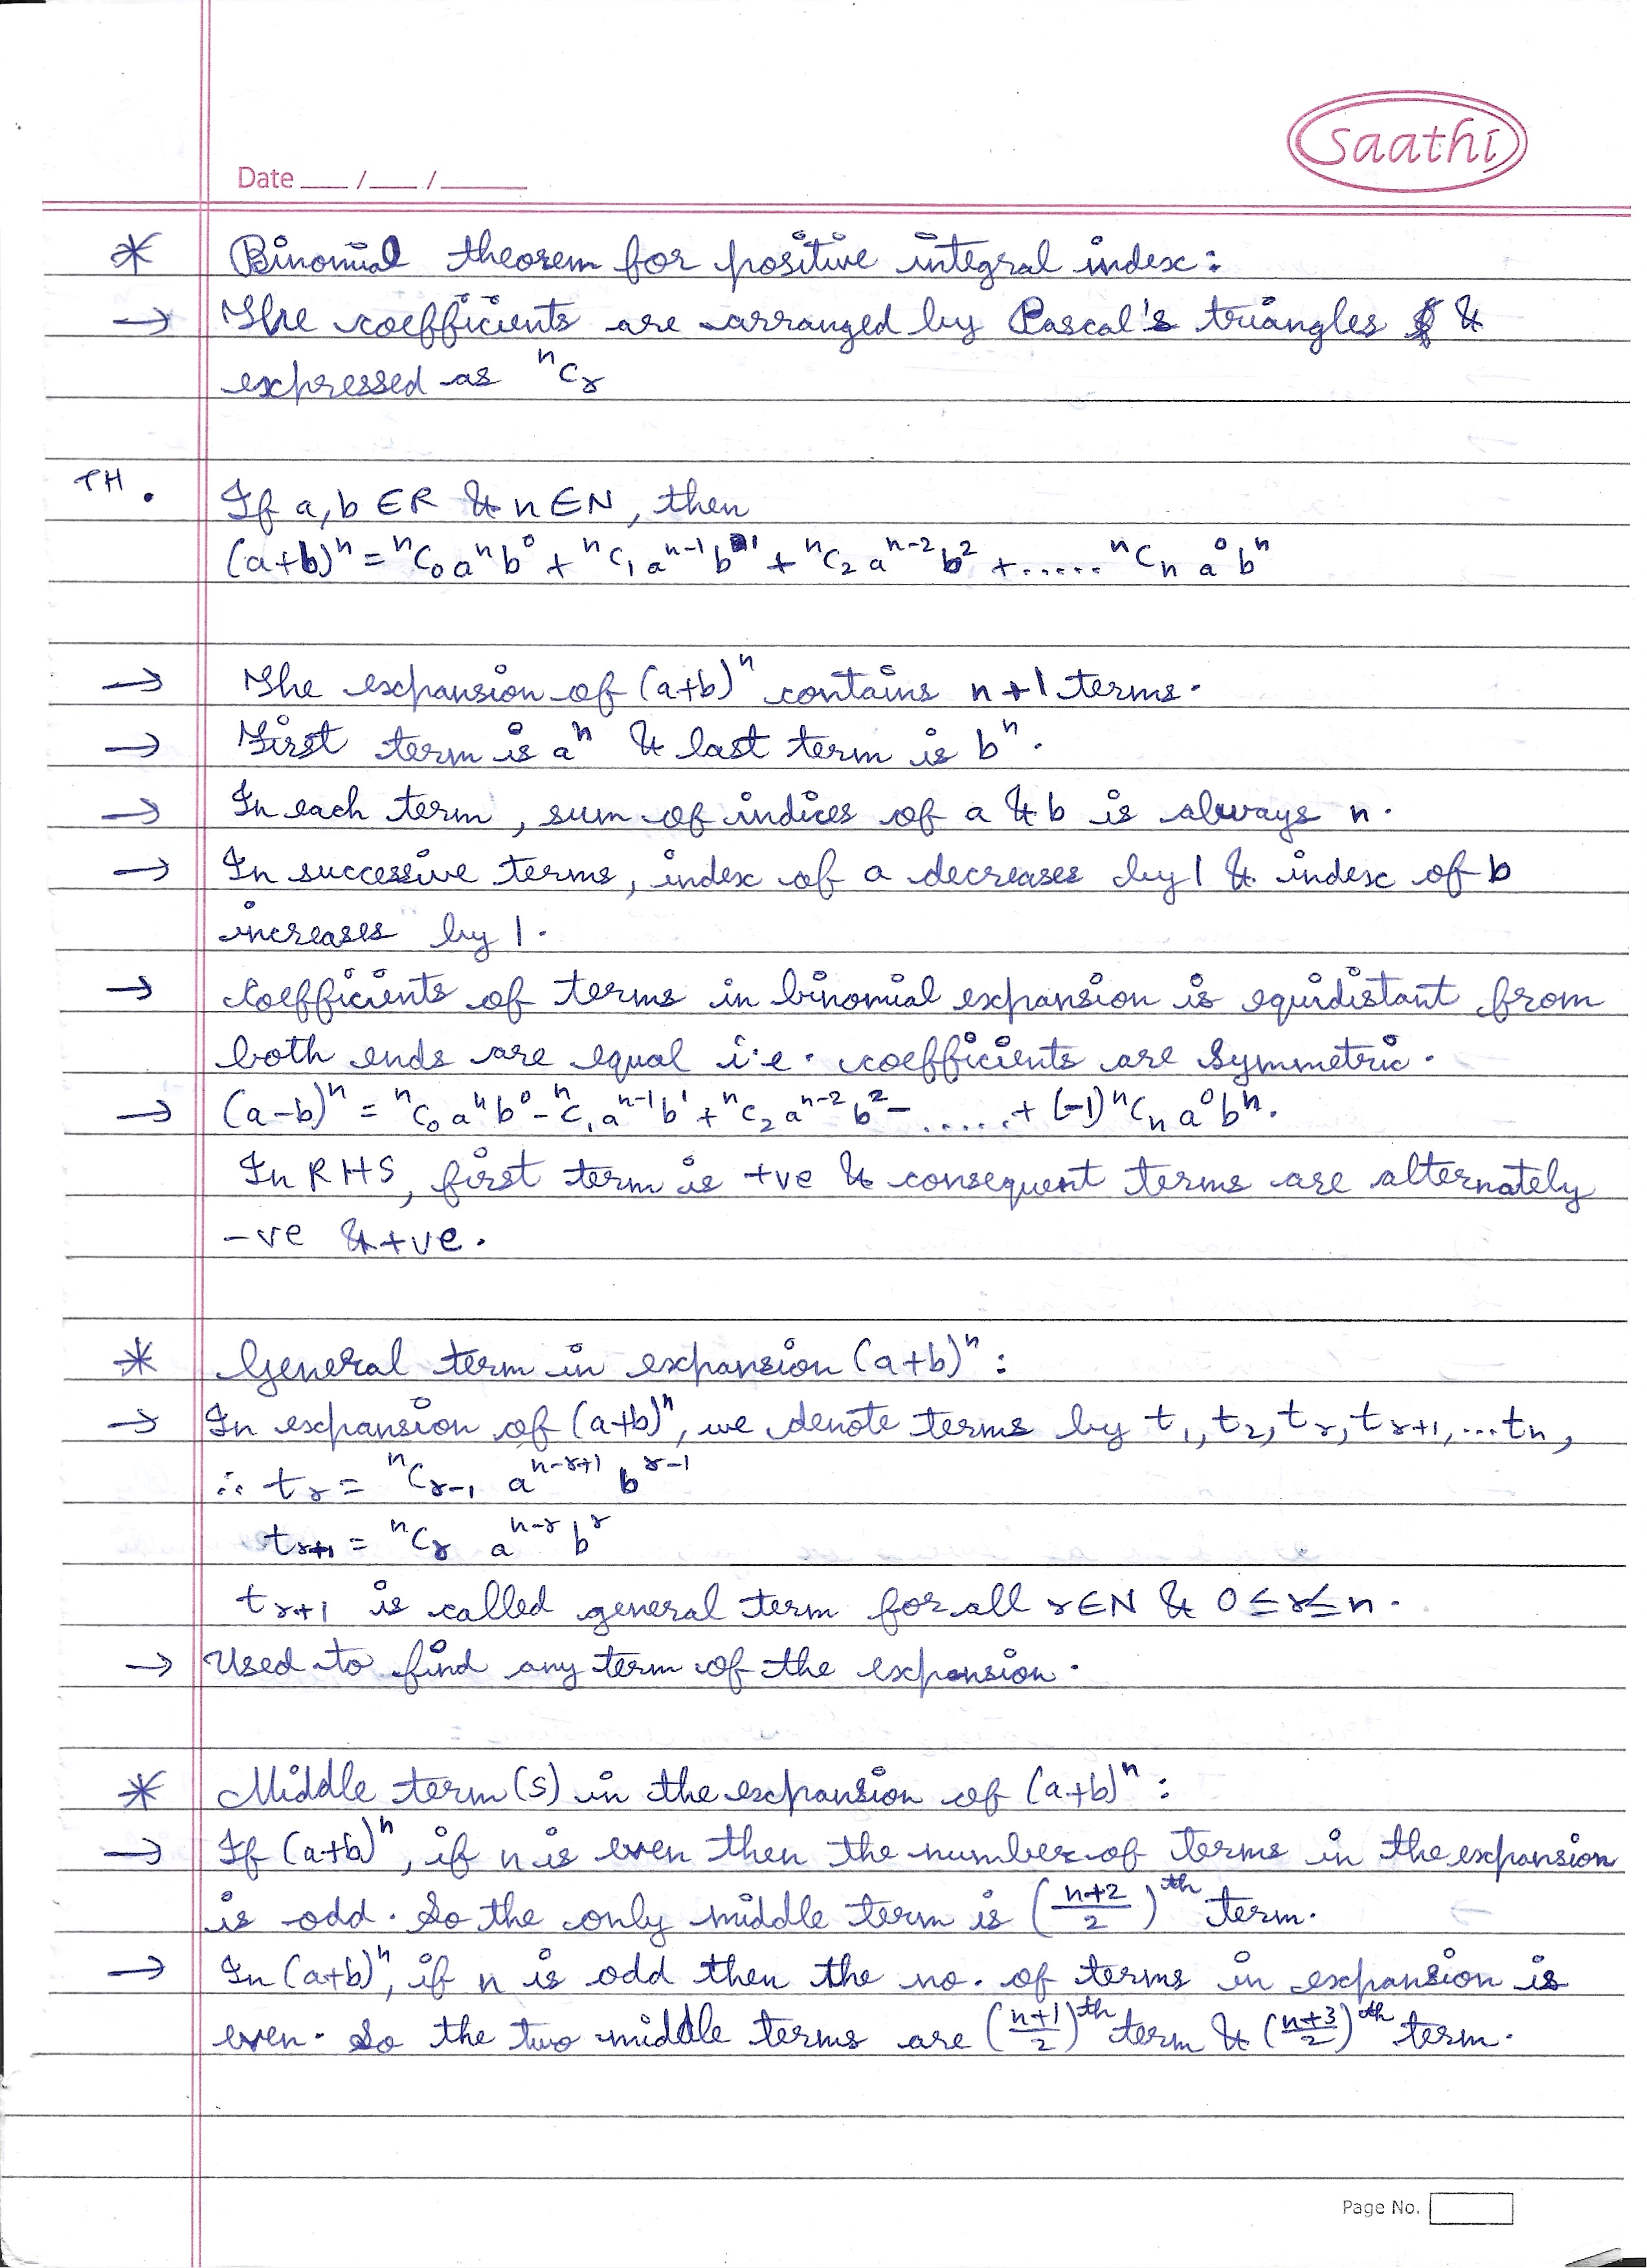 Saathi
Date ___ / ___ / ______
* Binomial theorem for positive integral index:
→ The coefficients are arranged by Pascal's triangles &
expressed as ⁿCᵣ
TH. If a, b ∈ R & n ∈ N, then
(a+b)ⁿ = ⁿC₀ aⁿ b⁰ + ⁿC₁ aⁿ⁻¹ b¹ + ⁿC₂ aⁿ⁻² b² + ...... ⁿCₙ a⁰ bⁿ
→ The expansion of (a+b)ⁿ contains n+1 terms.
→ First term is aⁿ & last term is bⁿ.
→ In each term, sum of indices of a & b is always n.
→ In successive terms, index of a decreases by 1 & index of b
increases by 1.
→ Coefficients of terms in binomial expansion is equidistant from
both ends are equal i.e. coefficients are symmetric.
→ (a-b)ⁿ = ⁿC₀ aⁿ b⁰ - ⁿC₁ aⁿ⁻¹ b¹ + ⁿC₂ aⁿ⁻² b² - ...... + (-1)ⁿ Cₙ a⁰ bⁿ.
In RHS, first term is +ve & consequent terms are alternately
-ve & +ve.
* General term in expansion (a+b)ⁿ:
→ In expansion of (a+b)ⁿ, we denote terms by t₁, t₂, tᵣ, tᵣ₊₁, ... tₙ,
∴ tᵣ = ⁿCᵣ₋₁ aⁿ⁻ʳ⁺¹ bʳ⁻¹
tᵣ₊₁ = ⁿCᵣ aⁿ⁻ʳ bʳ
tᵣ₊₁ is called general term for all r ∈ N & 0 ≤ r ≤ n.
→ Used to find any term of the expansion.
* Middle term(s) in the expansion of (a+b)ⁿ:
→ If (a+b)ⁿ, if n is even then the number of terms in the expansion
is odd. So the only middle term is ((n+2)/2)ᵗʰ term.
→ In (a+b)ⁿ, if n is odd then the no. of terms in expansion is
even. So the two middle terms are ((n+1)/2)ᵗʰ term & ((n+3)/2)ᵗʰ term.
Page No.